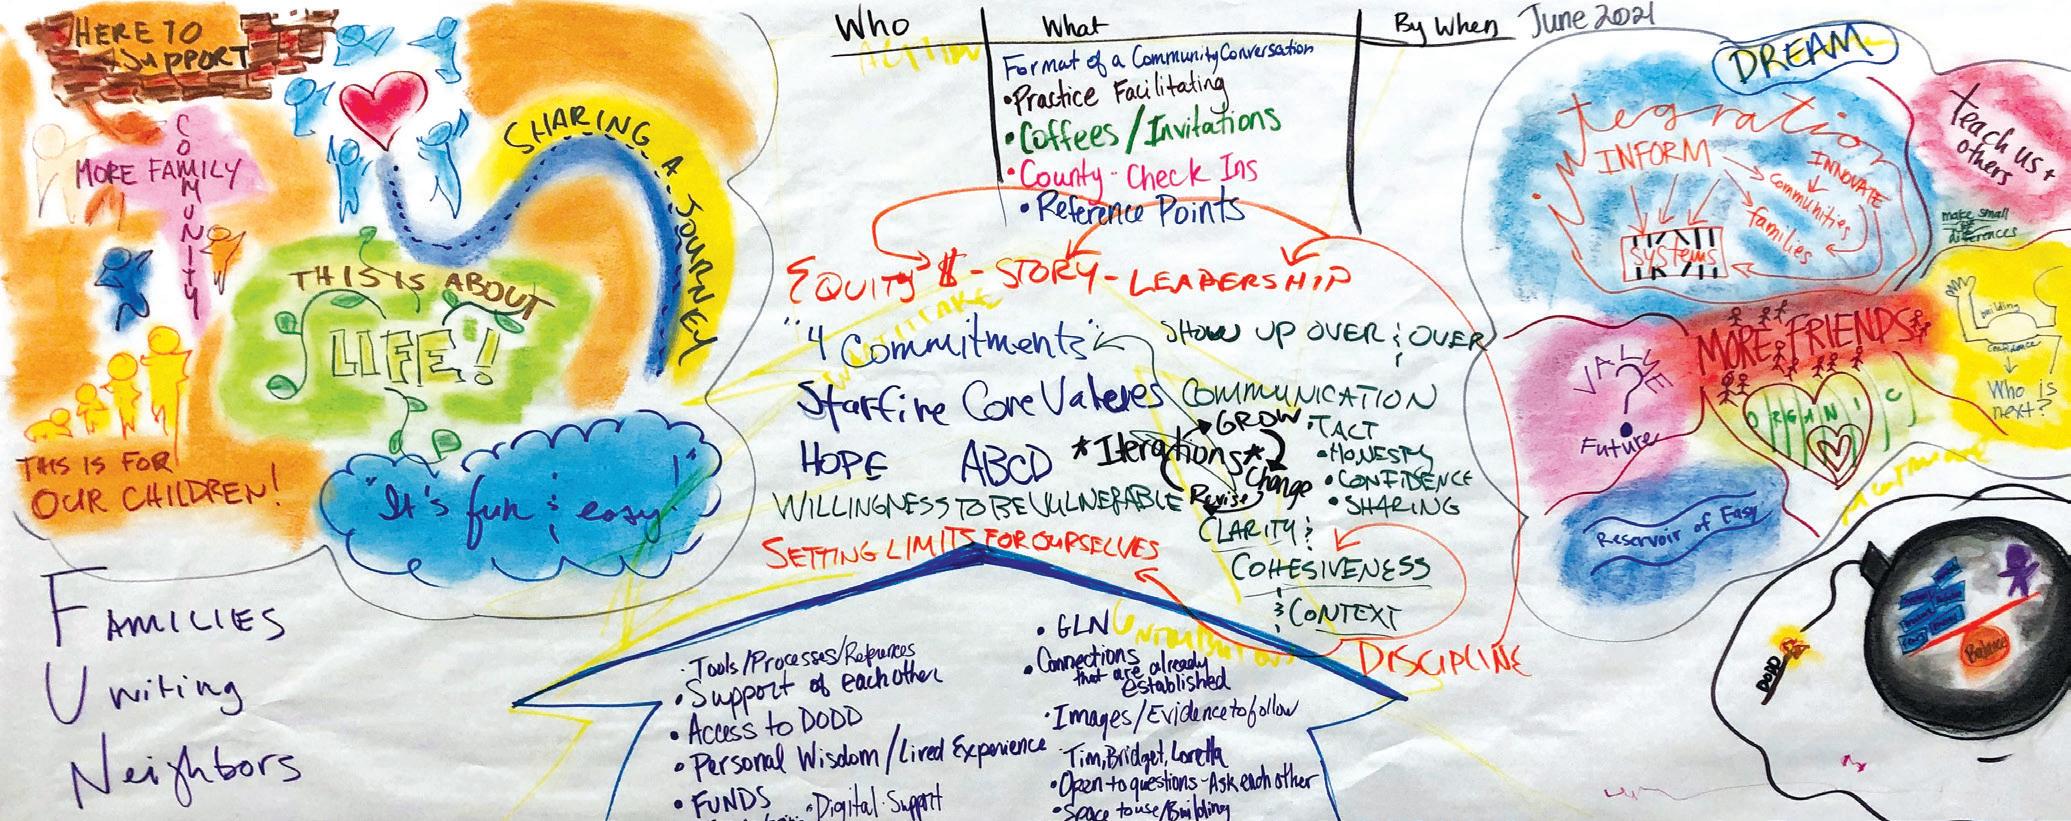 HERE TO
SUPPORT
COMMUNITY
MORE FAMILY
SHARING A JOURNEY
THIS IS ABOUT
LIFE!
THIS IS FOR
OUR CHILDREN!
"It's fun & easy!"
FAMILIES
Uniting
Neighbors
Who
What
By When
June 2021
ACTION
Format of a Community Conversation
•Practice Facilitating
•Coffees/Invitations
•County-Check Ins
•Reference Points
EQUITY $-STORY-LEADERSHIP
"4 Commitments"
SHOW UP OVER & OVER
Starfire Core Values
COMMUNICATION
•TACT
•HONESTY
•CONFIDENCE
•SHARING
HOPE
ABCD
*Iterations*
GROW
Change
Revise
WILLINGNESS TO BE VULNERABLE
CLARITY &
SETTING LIMITS FOR OURSELVES
COHESIVENESS
& CONTEXT
DISCIPLINE
•Tools/Processes/References
•Support of each other
•Access to DODD
•Personal Wisdom/Lived Experience
•FUNDS
•Digital Support
•GLN
•Connections
that are already
established
•Images/Evidence to follow
•Tim, Bridget, Loretta
•Open to questions-Ask each other
•Space to use/Building
DREAM
Integration
INFORM
INNOVATE
Communities
families
systems
Teach us +
others
make small
differences
MORE FRIENDS
VALUE
?
Future
ORGANIC
building
confidence
Who is
next?
Reservoir of Easy
DODD
Balance